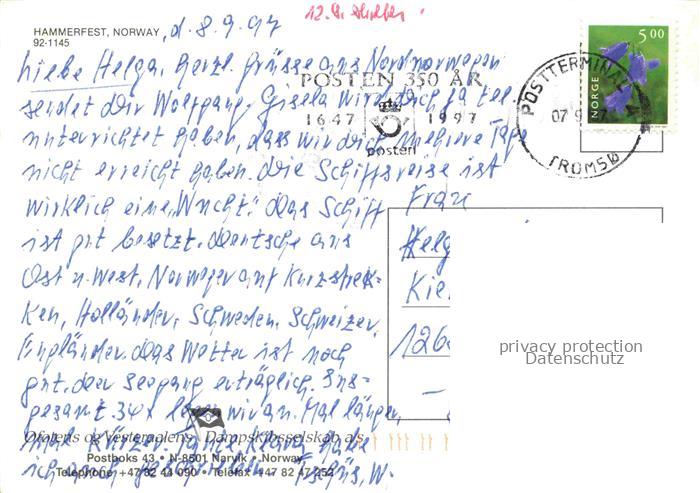 12.9.
HAMMERFEST, NORWAY
92-1145
, d. 8.9.97
Liebe Helga, herzl. Grüsse aus Nordnorwegen
sendet Dir Wolfgang. Gisela wird Dich ja tel.
unterrichtet haben, dass wir Dich mehrere Tage
nicht erreicht haben. Die Schiffsreise ist
wirklich eine „Wucht“. Das Schiff
ist gut besetzt. Deutsche aus
Ost u. West, Norweger auf Kurzstrek-
ken, Holländer, Schweden, Schweizer,
Engländer. Das Wetter ist noch
gut, der Seegang erträglich. Ins-
gesamt 34x legen wir an. Mal länger,
mal kürzer. habe
ich auch W.
POSTEN 350 ÅR
1647 1997
posten
5.00
NORGE
POSTTERMINAL
07 9
TROMSØ
Frau
Helg
Kie
126
privacy protection
Datenschutz
Ofotens og Vesteraalens Dampskibsselskab a/s
Postboks 43 • N-8501 Narvik • Norway
Telephone +47 82 44 090 • Telefax +47 82 47 252